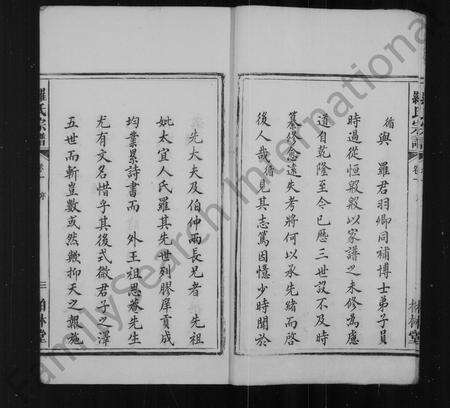 循與 羅君羽卿同補博士弟子員
時過從恒殷殷以家譜之未修為應
道自乾隆至今已歷三世設不及時
纂修忽遠失考將何以承先緒而啓
後人哉循見其志篤因憶少時聞於
先大夫及伯仲兩長兄者 先祖
妣太宜人氏羅其先世列膠庠貢成
均業累詩書而 外王祖思菴先生
尤有文名惜乎其後式微君子之澤
五世而斬豈數或然歟抑天之報施
羅氏宗譜
卷一 序
三
柏林堂
羅氏宗譜
柏林堂
FamilySearch International